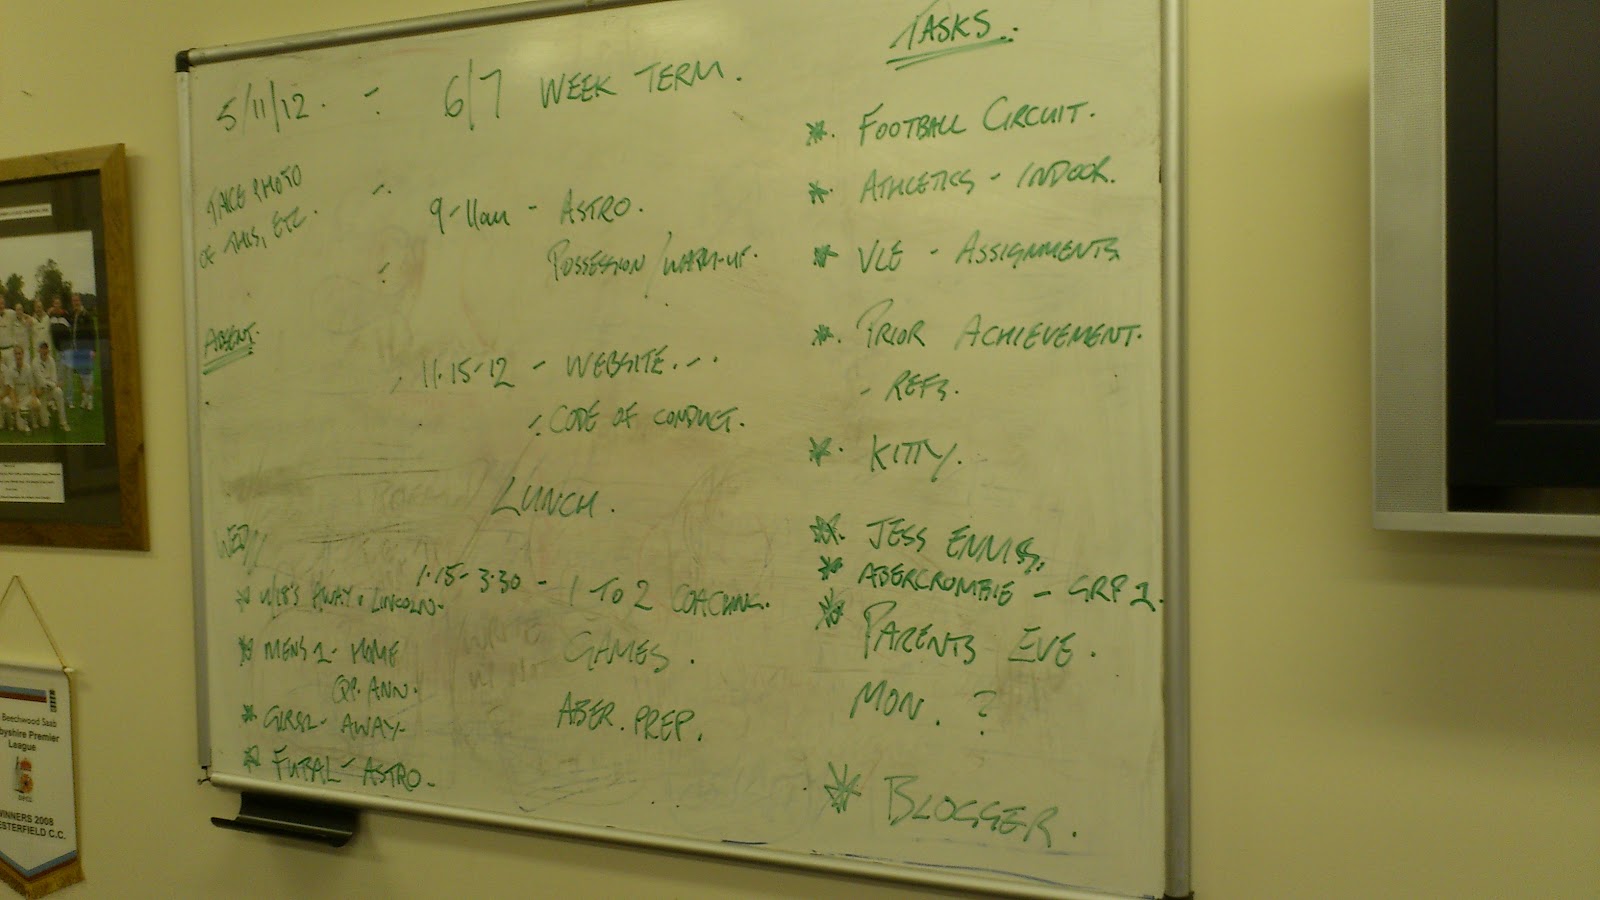 5/11/12. - 6/7 WEEK TERM.
TAKE PHOTO
OF THIS, ETC.
9-11am - ASTRO.
POSSESSION/WARM-UP.
ABSENT.
11.15-12 - WEBSITE.
- CODE OF CONDUCT.
LUNCH.
WED//
1.15-3.30 - 1 TO 2 COACHING.
GAMES.
ABER. PREP.
* U18'S AWAY LINCOLN.
* MENS 1 - HOME
QP. ANN.
* GIRLS - AWAY.
* FUTSAL - ASTRO.
TASKS.
*. FOOTBALL CIRCUIT.
*. ATHLETICS - INDOOR.
* VLE - ASSIGNMENTS
*. PRIOR ACHIEVEMENT.
- REFS.
*. KITTY.
*. JESS ENNIS.
* ABERCROMBIE - GRP 1.
* PARENTS EVE.
MON. ?
* BLOGGER.
Beechwood Saab
byshire Premier
League
WINNERS 2008
ESTERFIELD C.C.